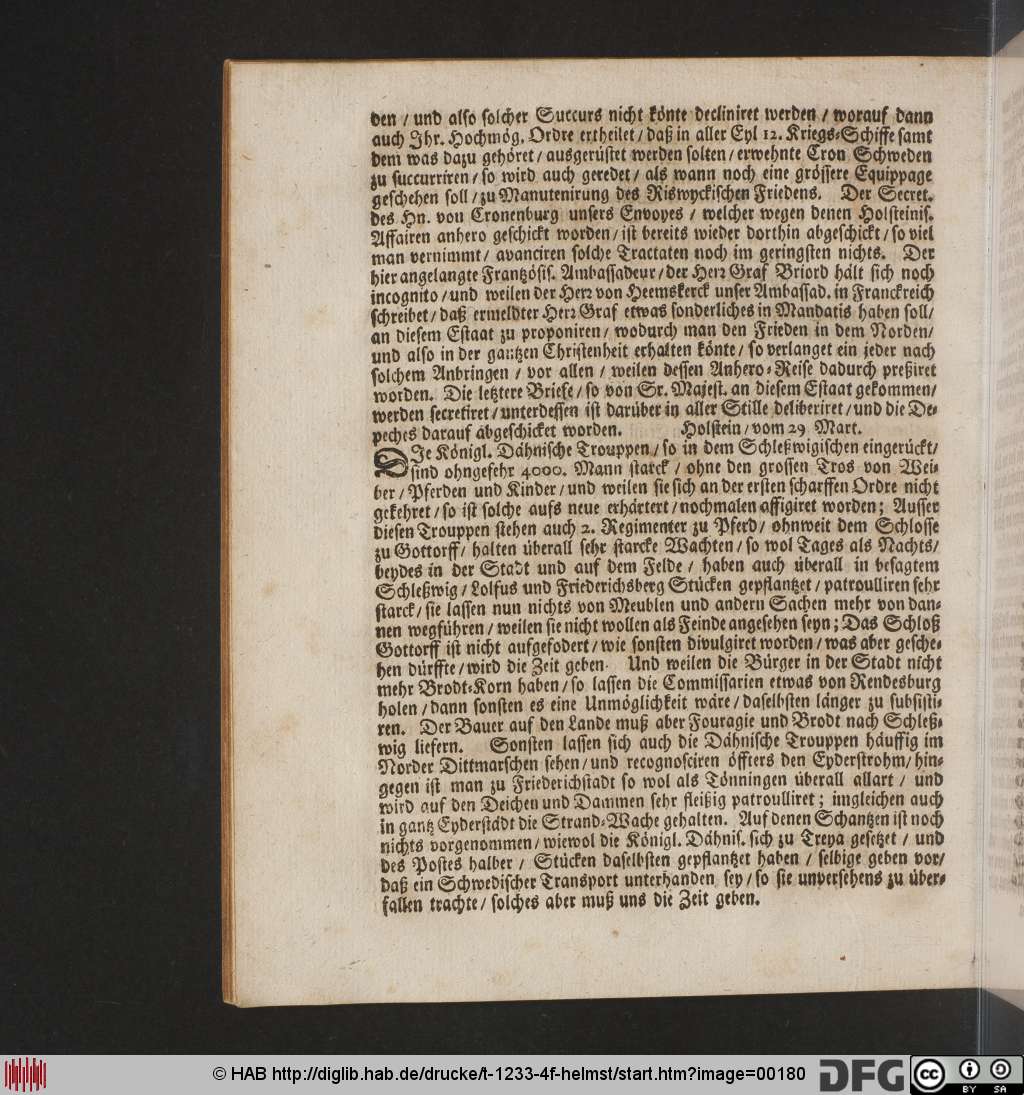 den / und also solcher Succurs nicht könte decliniret werden / worauf dann
auch Ihr. Hochmög. Ordre ertheilet / daß in aller Eyl 12. Kriegs-Schiffe samt
dem was dazu gehöret / ausgerüstet werden solten / erwehnte Cron Schweden
zu succurriren / so wird auch geredet / als wann noch eine grössere Equippage
geschehen soll / zu Manutenirung des Riswyckischen Friedens. Der Secret.
des Hn. von Cronenburg unsers Envoyes / welcher wegen denen Holsteinis.
Affairen anhero geschickt worden / ist bereits wieder dorthin abgeschickt / so viel
man vernimmt / avanciren solche Tractaten noch im geringsten nichts. Der
hier angelangte Frantzösis. Ambassadeur / der Herr Graf Briord hält sich noch
incognito / und weilen der Herr von Heemskerck unser Ambassad. in Franckreich
schreibet / daß ermeldter Herr Graf etwas sonderliches in Mandatis haben soll /
an diesem Estaat zu proponiren / wodurch man den Frieden in dem Norden /
und also in der gantzen Christenheit erhalten könte / so verlanget ein jeder nach
solchem Anbringen / vor allen / weilen dessen Anhero-Reise dadurch preßiret
worden. Die letztere Briefe / so von Sr. Majest. an diesem Estaat gekommen /
werden secretiret / unterdessen ist darüber in aller Stille deliberiret / und die De-
peches darauf abgeschicket worden. Holstein / vom 29 Mart.
DIe Königl. Dähnische Trouppen / so in dem Schleßwigischen eingerückt /
sind ohngefehr 4000. Mann starck / ohne den grossen Tros von Wei-
ber / Pferden und Kinder / und weilen sie sich an der ersten scharffen Ordre nicht
gekehret / so ist solche aufs neue erhärtert / nochmalen affigiret worden; Ausser
diesen Trouppen stehen auch 2. Regimenter zu Pferd / ohnweit dem Schlosse
zu Gottorff / halten überall sehr starcke Wachten / so wol Tages als Nachts /
beydes in der Stadt und auf dem Felde / haben auch überall in besagtem
Schleßwig / Lolfus und Friederichsberg Stücken gepflantzet / patroulliren sehr
starck / sie lassen nun nichts von Meublen und andern Sachen mehr von dan-
nen wegführen / weilen sie nicht wollen als Feinde angesehen seyn; Das Schloß
Gottorff ist nicht aufgefodert / wie sonsten divulgiret worden / was aber gesche-
hen dürffte / wird die Zeit geben. Und weilen die Bürger in der Stadt nicht
mehr Brodt-Korn haben / so lassen die Commissarien etwas von Rendesburg
holen / dann sonsten es eine Unmöglichkeit wäre / daselbsten länger zu subsisti-
ren. Der Bauer auf den Lande muß aber Fouragie und Brodt nach Schleß-
wig liefern. Sonsten lassen sich auch die Dähnische Trouppen häuffig im
Norder Dittmarschen sehen / und recognosciren öffters den Eyderstrohm / hin-
gegen ist man zu Friederichstadt so wol als Tönningen überall allart / und
wird auf den Deichen und Dammen sehr fleißig patroulliret; imgleichen auch
in gantz Eyderstädt die Strand-Wache gehalten. Auf denen Schantzen ist noch
nichts vorgenommen / wiewol die Königl. Dähnis. sich zu Treya gesetzet / und
des Postes halber / Stücken daselbsten gepflantzet haben / selbige geben vor /
daß ein Schwedischer Transport unterhanden sey / so sie unversehens zu über-
fallen trachte / solches aber muß uns die Zeit geben.
© HAB http://diglib.hab.de/drucke/t-1233-4f-helmst/start.htm?image=00180
DFG
cc BY SA